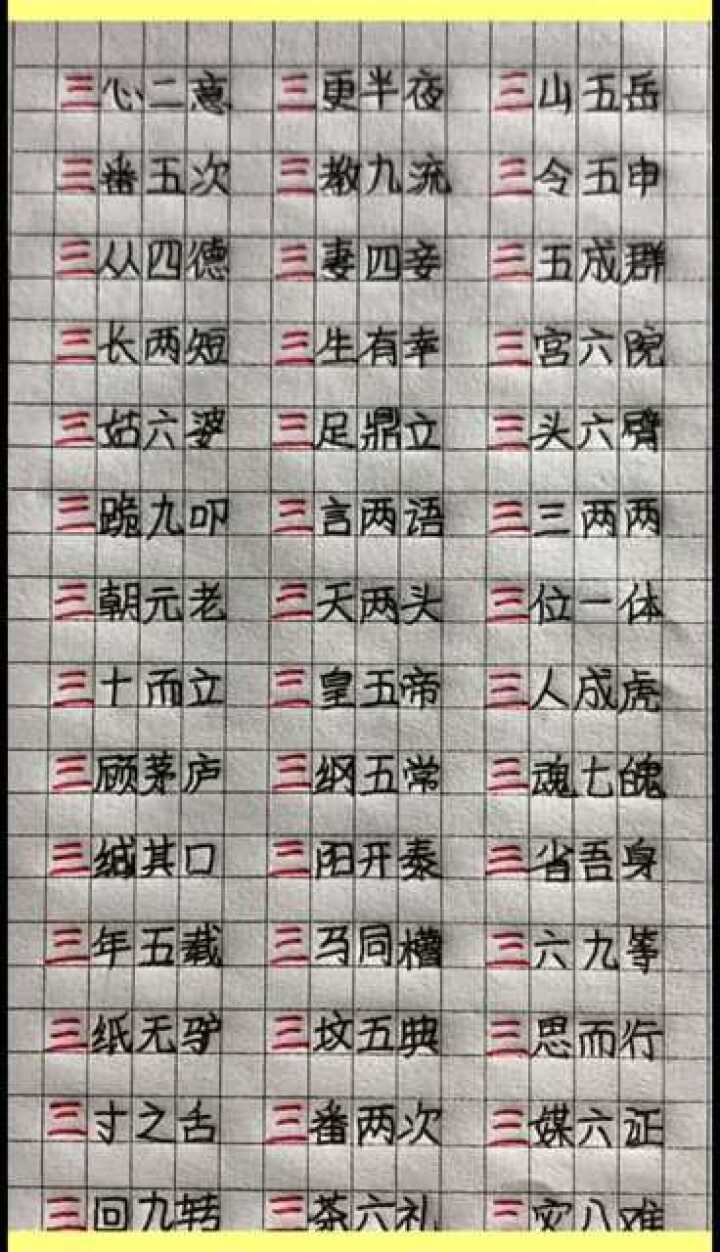 三心二意 三更半夜 三山五岳
三番五次 三教九流 三令五申
三从四德 三妻四妾 三五成群
三长两短 三生有幸 三宫六院
三姑六婆 三足鼎立 三头六臂
三跪九叩 三言两语 三三两两
三朝元老 三天两头 三位一体
三十而立 三皇五帝 三人成虎
三顾茅庐 三纲五常 三魂七魄
三缄其口 三阳开泰 三省吾身
三年五载 三马同槽 三六九等
三纸无驴 三坟五典 三思而行
三寸之舌 三番两次 三媒六证
三回九转 三茶六礼 三灾八难